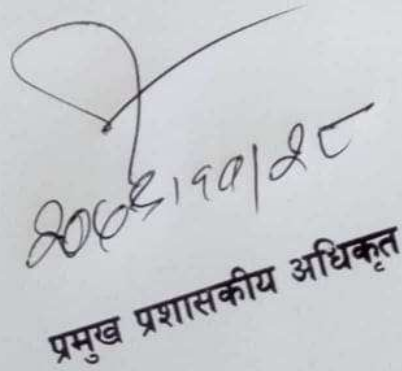 २०७९।११।२८
प्रमुख प्रशासकीय अधिकृत